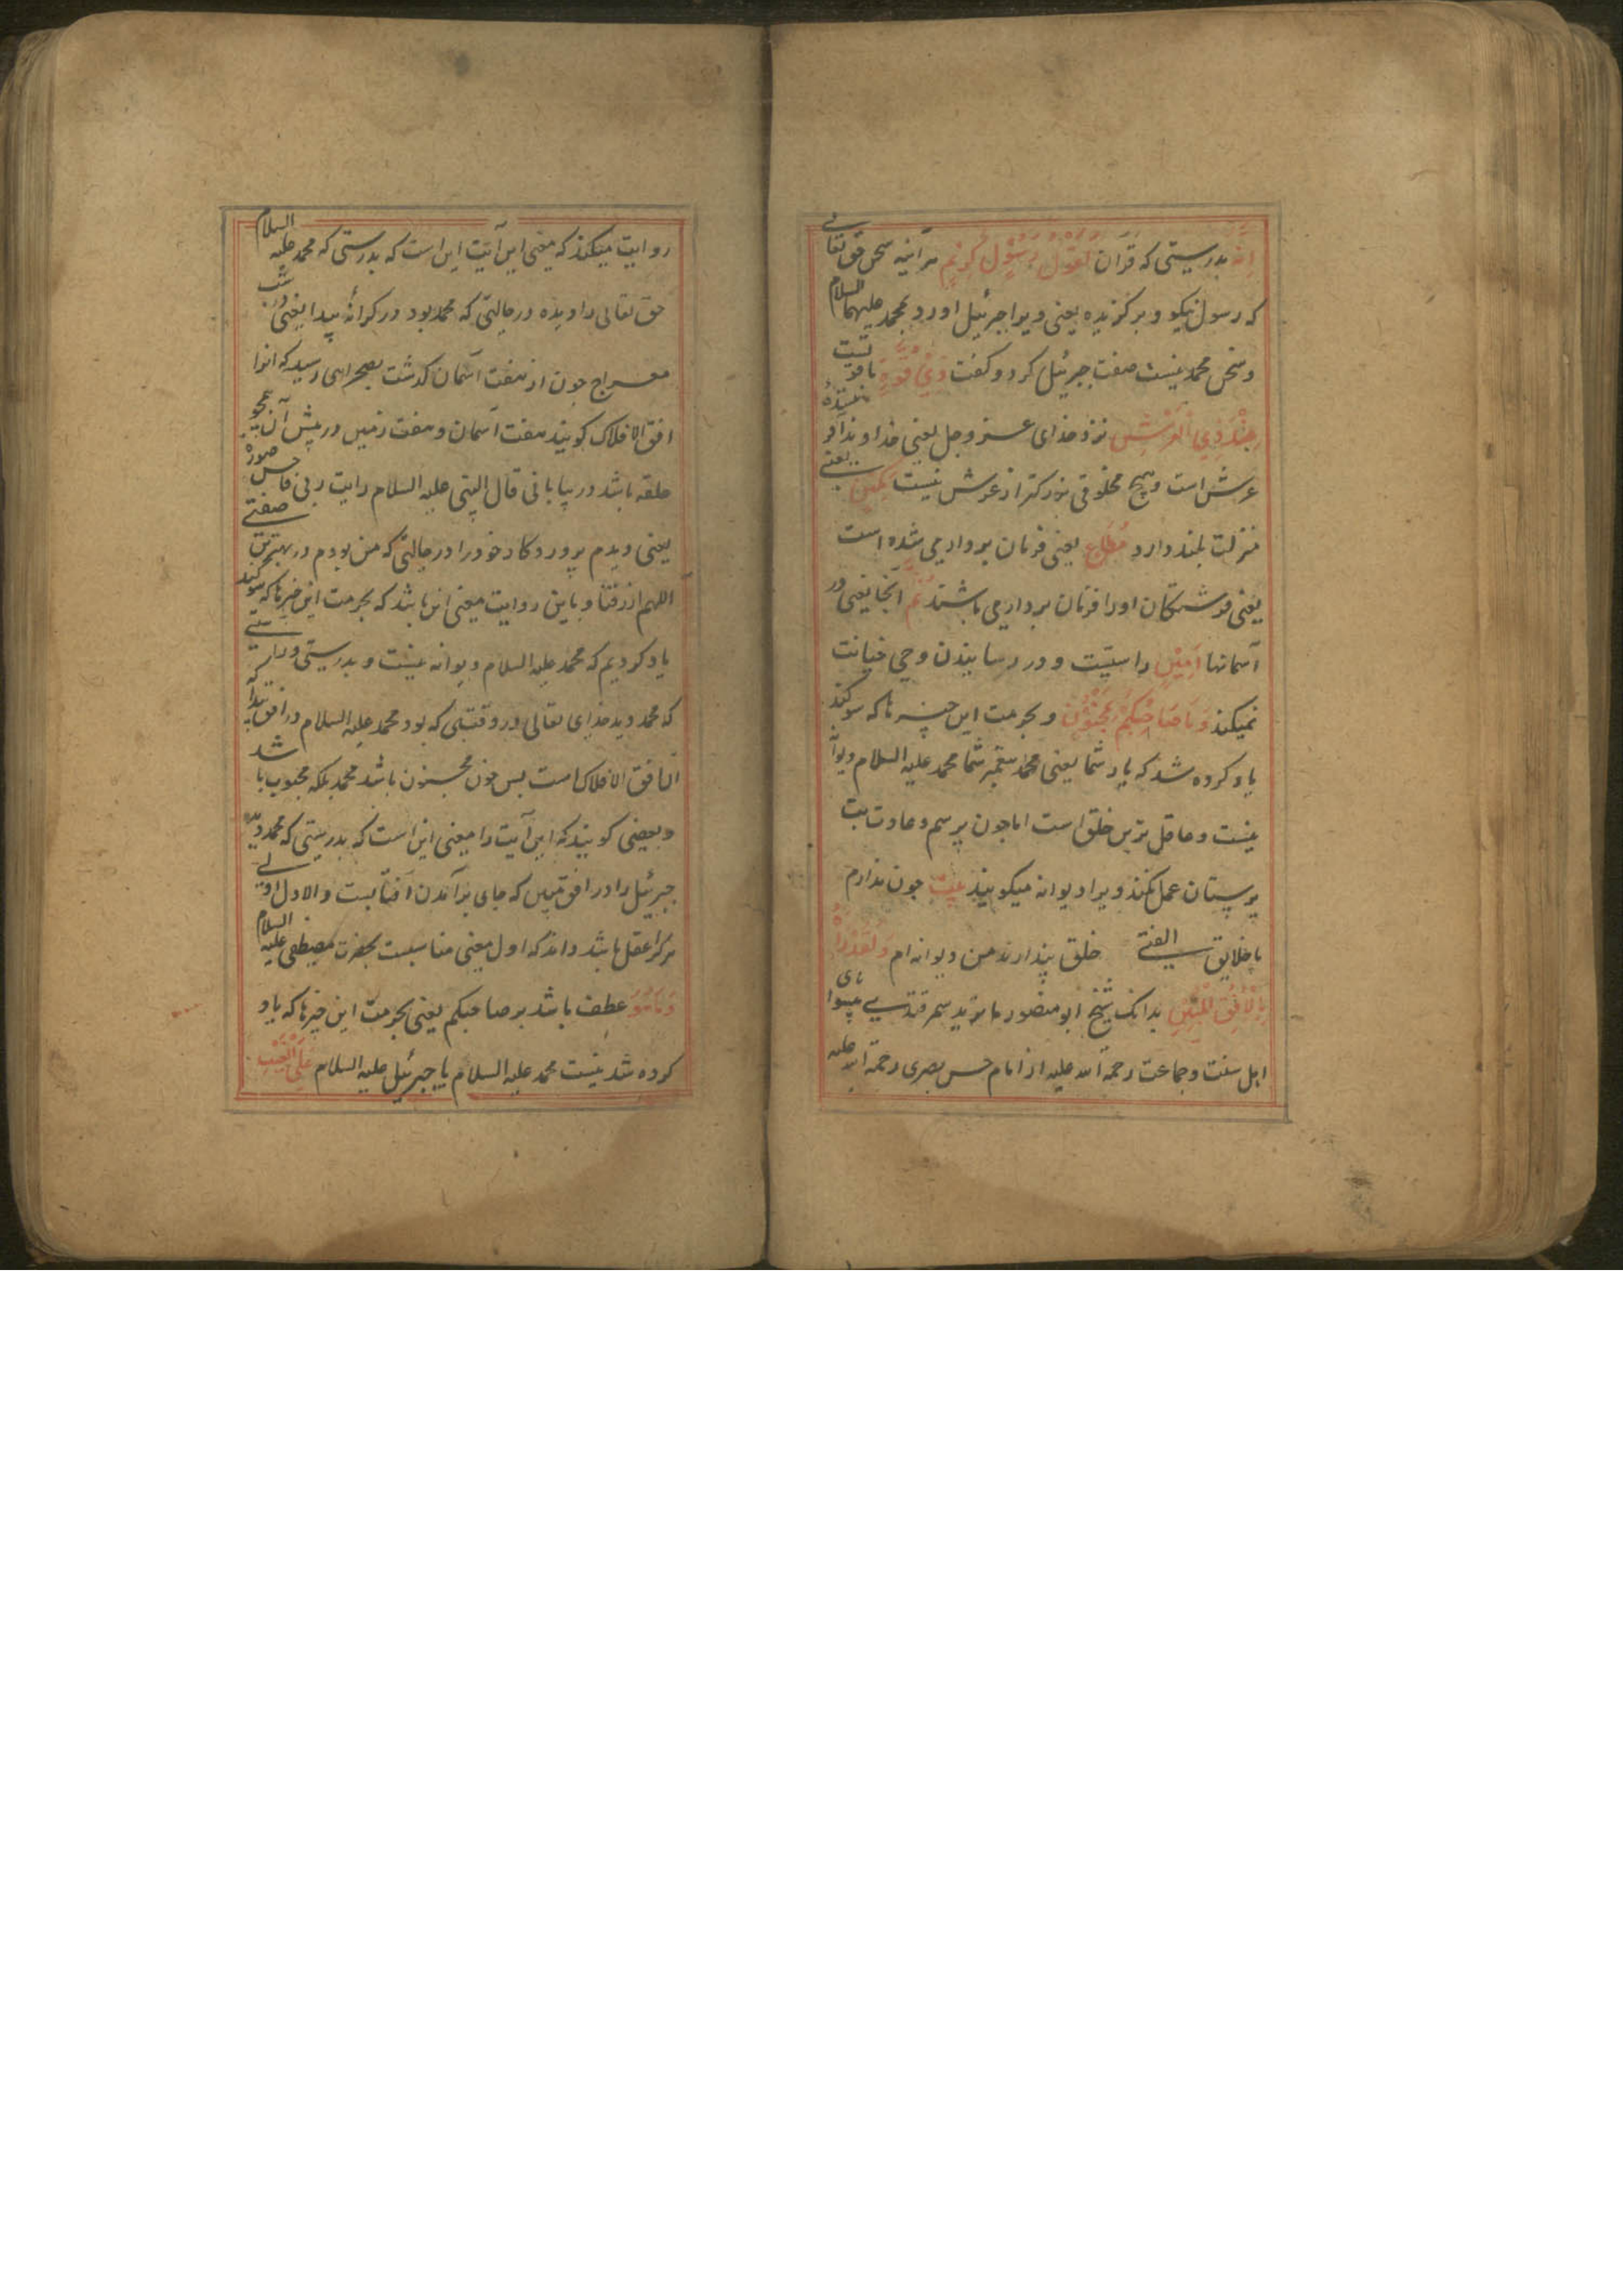 اِنَّهُ بدرستی که قرآن لَقَوْلُ رَسُوْلٍ كَرِيْمٍ هرآینه سخن حق تعالی
که رسول نیکو و برگزیده یعنی ویرا جبرئیل اورد بمحمد علیهما السلام
و سخن محمد نیست صفت جبرئیل کرد و کفت ذِيْ قُوَّةٍ با قوتست
عِنْدَ ذِي الْعَرْشِ نزد خدای عز و جل یعنی خداوند آفریننده
عرش است و هیچ مخلوقی بزرکتر از عرش نیست مَكِيْنٍ یعنی
منزلت بلند دارد مُطَاعٍ یعنی فرمان برداری شده است
یعنی فرشتکان او را فرمان برداری باشند ثَمَّ آنجا یعنی در
آسمانها اَمِيْنٍ راستست و در رسانیدن وحی خیانت
نمیکند وَمَا صَاحِبُكُمْ بِمَجْنُوْنٍ و بحرمت این چیزها که سوکند
یاد کرده شد که یار شما یعنی محمد پیغمبر شما محمد علیه السلام دیوانه
نیست و عاقل ترین خلق است اما چون برسم و عادت بت
پرستان عمل نکند ویرا دیوانه میکویند بیت چون ندارم
با خلایق الفتی خلق پندارند من دیوانه ام وَلَقَدْ رَاٰهُ
بِالْاُفُقِ الْمُبِيْنِ بدانک شیخ ابو منصور ماتریدی سمرقندی پیشوای
اهل سنت و جماعت رحمة الله علیه از امام حسن بصری رحمة الله علیه
روایت میکند که معنی این آیت این است که بدرستی که محمد علیه السلام
حق تعالی را دیده در حالتی که محمد بود در کرانهٔ پیدا یعنی در شب
معراج چون از هفت آسمان کدشت بصحرایی رسید که انرا
افق الافلاک کویند هفت آسمان و هفت زمین در پیش آن همچو
حلقه باشد در بیابانی قال النبی علیه السلام رایت ربی فی احسن صورة
یعنی دیدم پروردکار خود را در حالتی که من بودم در بهترین صفتی
اللهم ارزقنا و باین روایت معنی این باشد که بحرمت این چیزها که سوکند
یاد کردیم که محمد علیه السلام دیوانه نیست و بدرستی و راستی
که محمد دید خدای تعالی در وقتی که بود محمد علیه السلام در افق پیدا که
آن افق الافلاک است پس چون مجنون باشد محمد بلکه محبوب باشد
و بعضی کویند که این آیت را معنی این است که بدرستی که محمد دید
جبرئیل را در افق مبین که جای برآمدن آفتابست و الاول اولی
هرکرا عقل باشد داند که اول معنی مناسبست بحضرت مصطفی علیه السلام
وَمَا هُوَ عطف باشد بر صاحبکم یعنی بحرمت این چیزها که یاد
کرده شد نیست محمد علیه السلام یا جبرئیل علیه السلام عَلَى الْغَيْبِ